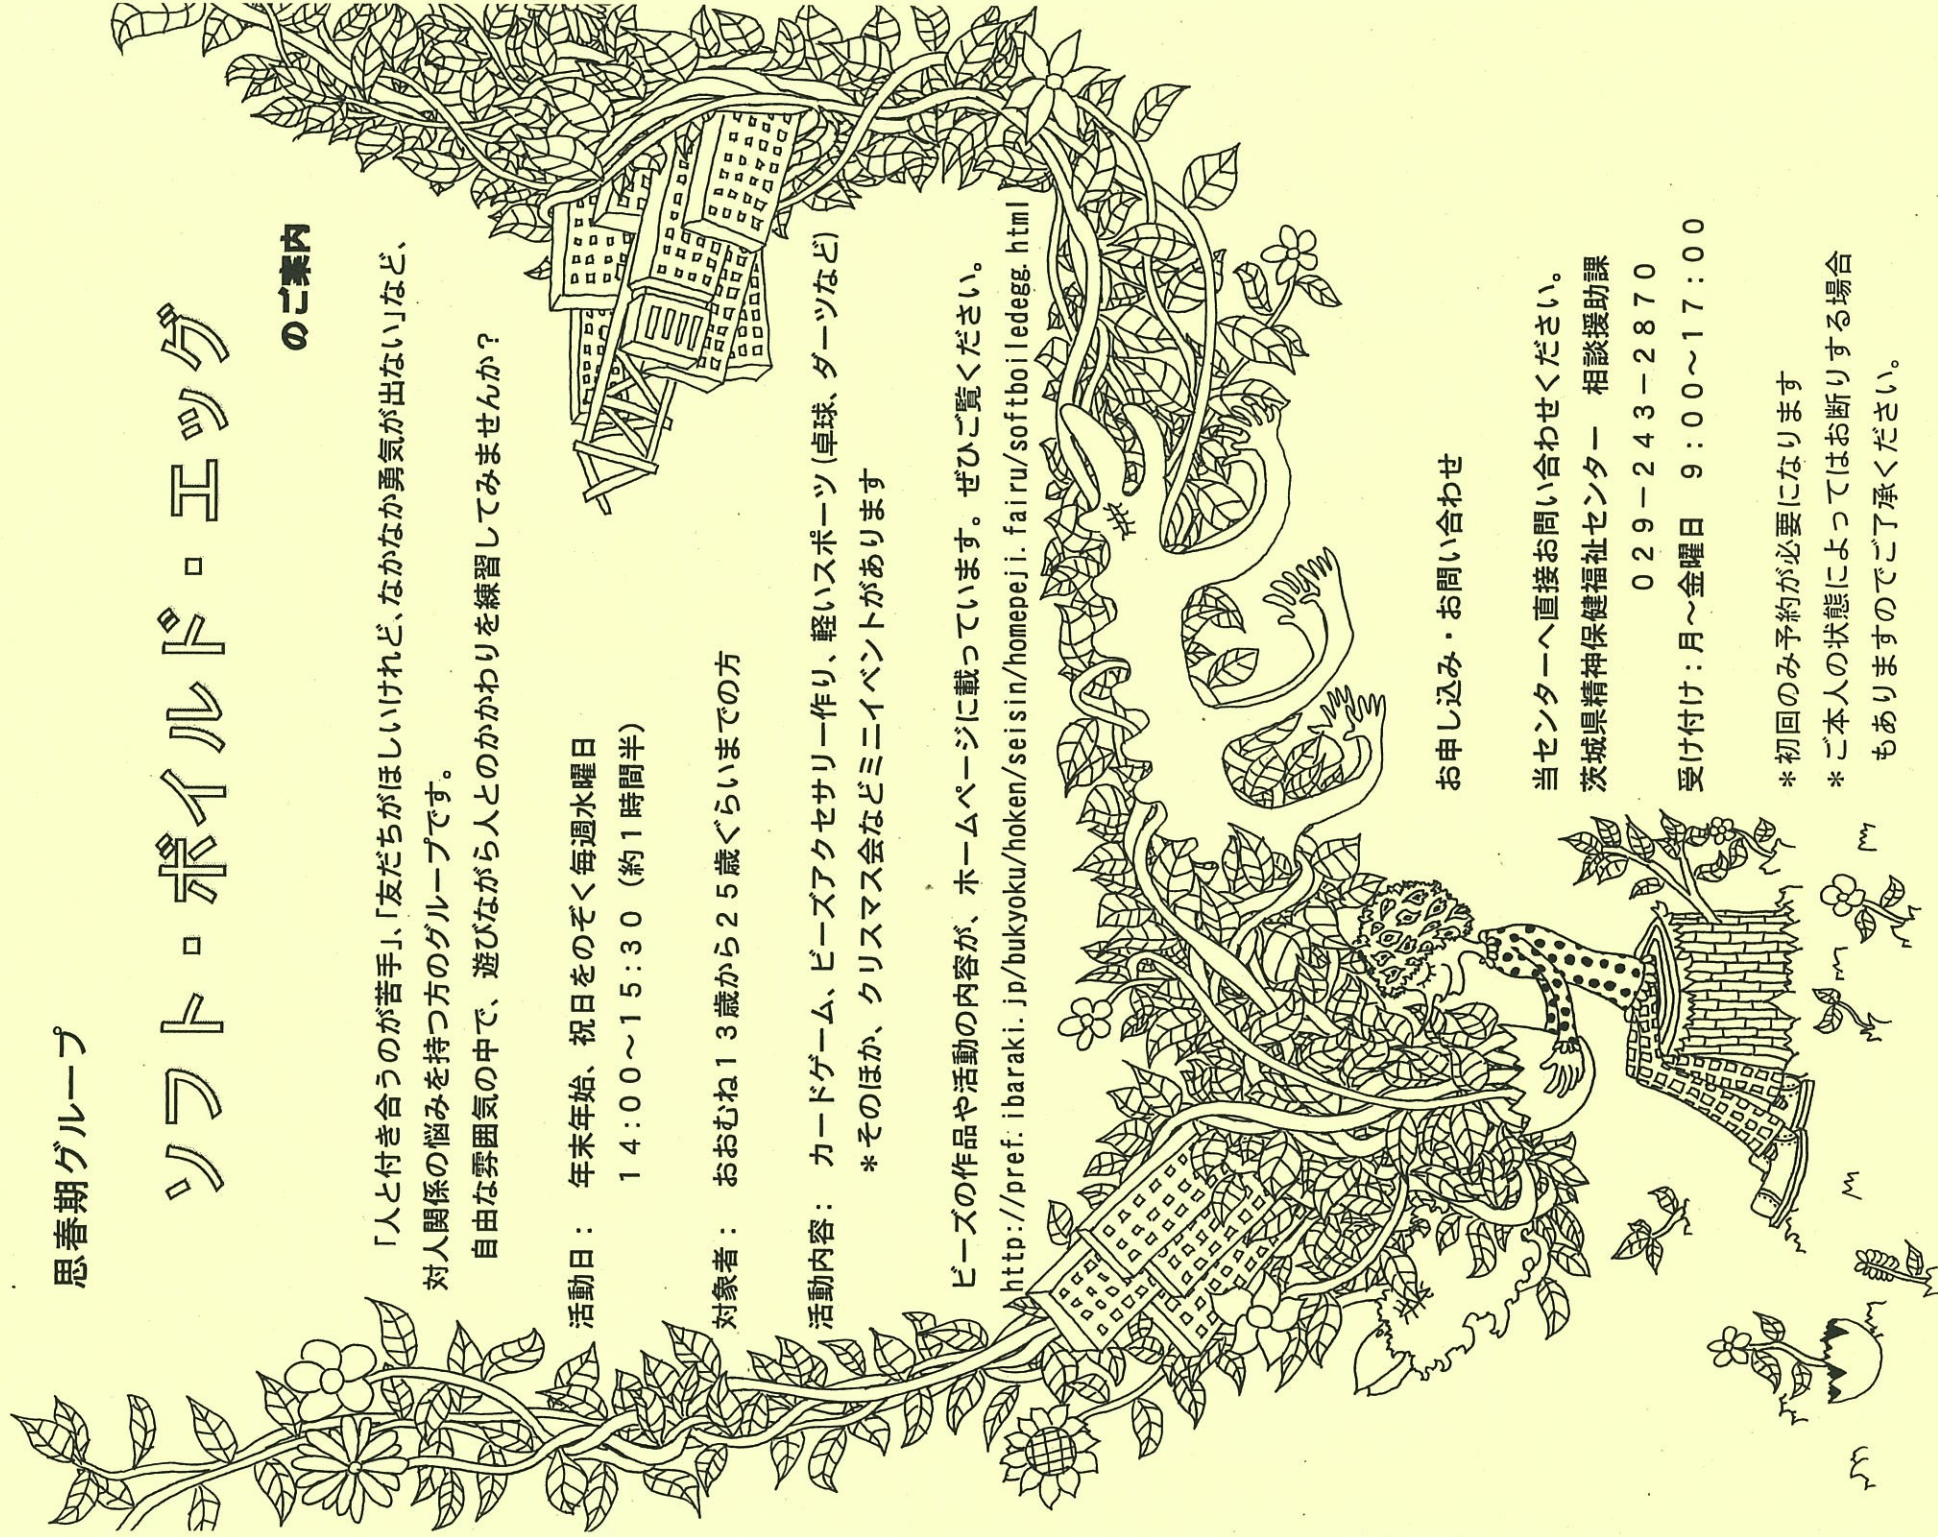 思春期グループ
ソフト・ボイルド・エッグ
のご案内
「人と付き合うのが苦手」、「友だちがほしいけれど、なかなか勇気が出ない」など、
対人関係の悩みを持つ方のグループです。
自由な雰囲気の中で、遊びながら人とのかかわりを練習してみませんか？
活動日： 年末年始、祝日をのぞく毎週水曜日
１４:００～１５:３０（約１時間半）
対象者： おおむね１３歳から２５歳ぐらいまでの方
活動内容： カードゲーム、ビーズアクセサリー作り、軽いスポーツ（卓球、ダーツなど）
＊そのほか、クリスマス会などミニイベントがあります
ビーズの作品や活動の内容が、ホームページに載っています。ぜひご覧ください。
http://pref.ibaraki.jp/bukyoku/hoken/seisin/homepeji.fairu/softboiledegg.html
お申し込み・お問い合わせ
当センターへ直接お問い合わせください。
茨城県精神保健福祉センター 相談援助課
０２９－２４３－２８７０
受け付け：月～金曜日 ９:００～１７:００
＊初回のみ予約が必要になります
＊ご本人の状態によってはお断りする場合
もありますのでご了承ください。